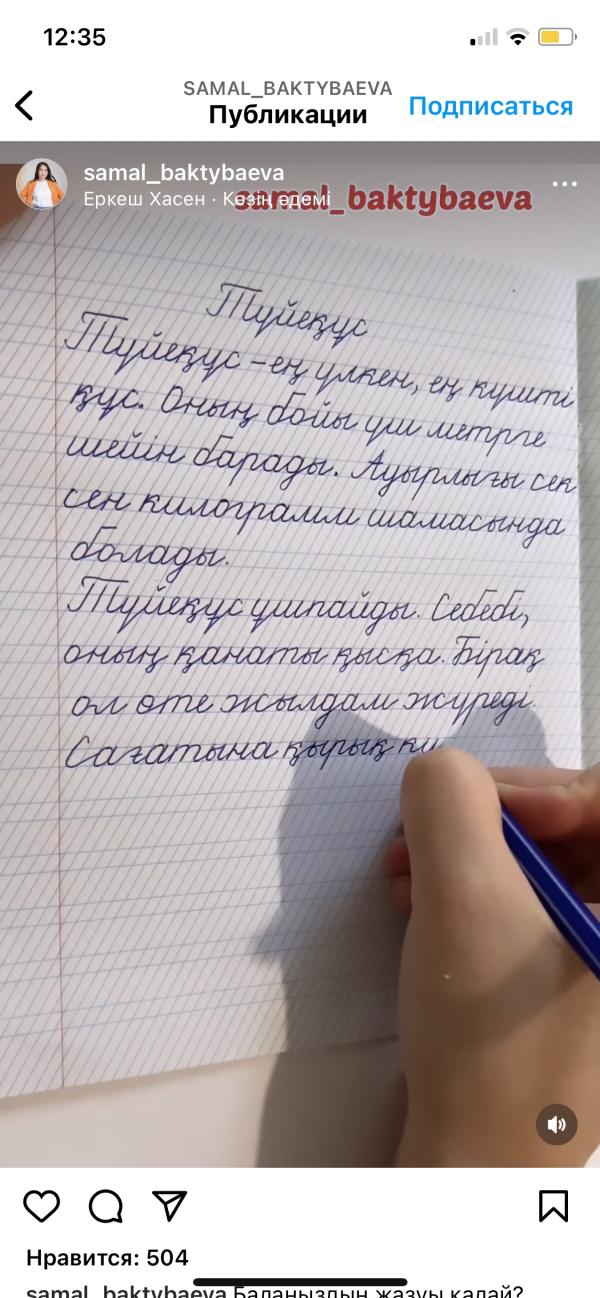 12:35
SAMAL_BAKTYBAEVA
Публикации
Подписаться
samal_baktybaeva
Еркеш Хасен · Көзің әдемі
samal_baktybaeva
Түйеқұс
Түйеқұс – ең үлкен, ең күшті
құс. Оның бойы үш метрге
шейін барады. Ауырлығы сек
сен килограмм шамасында
болады.
Түйеқұс ұшпайды. Себебі,
оның қанаты қысқа. Бірақ
ол өте жылдам жүреді.
Сағатына қырық ки
Нравится: 504
samal_baktybaeva Балаңыздың жазуы қалай?